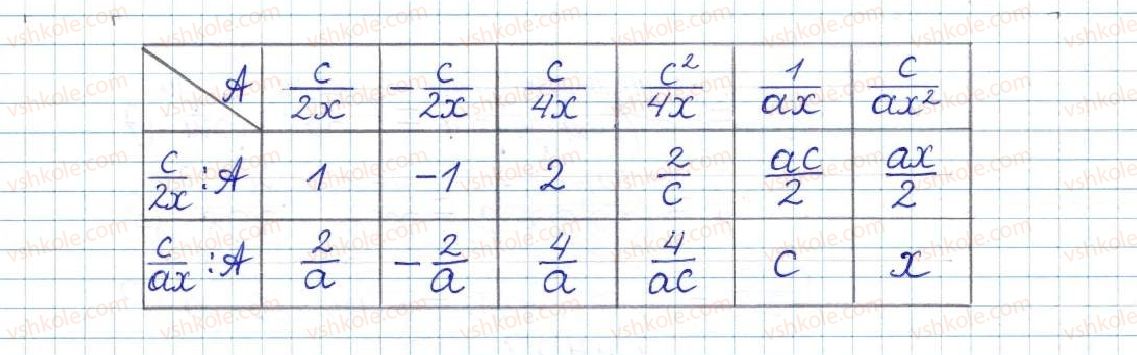 A c/2x -c/2x c/4x c²/4x 1/ax c/ax²
c/2x : A 1 -1 2 2/c ac/2 ax/2
c/ax : A 2/a -2/a 4/a 4/ac c x
vshkole.com